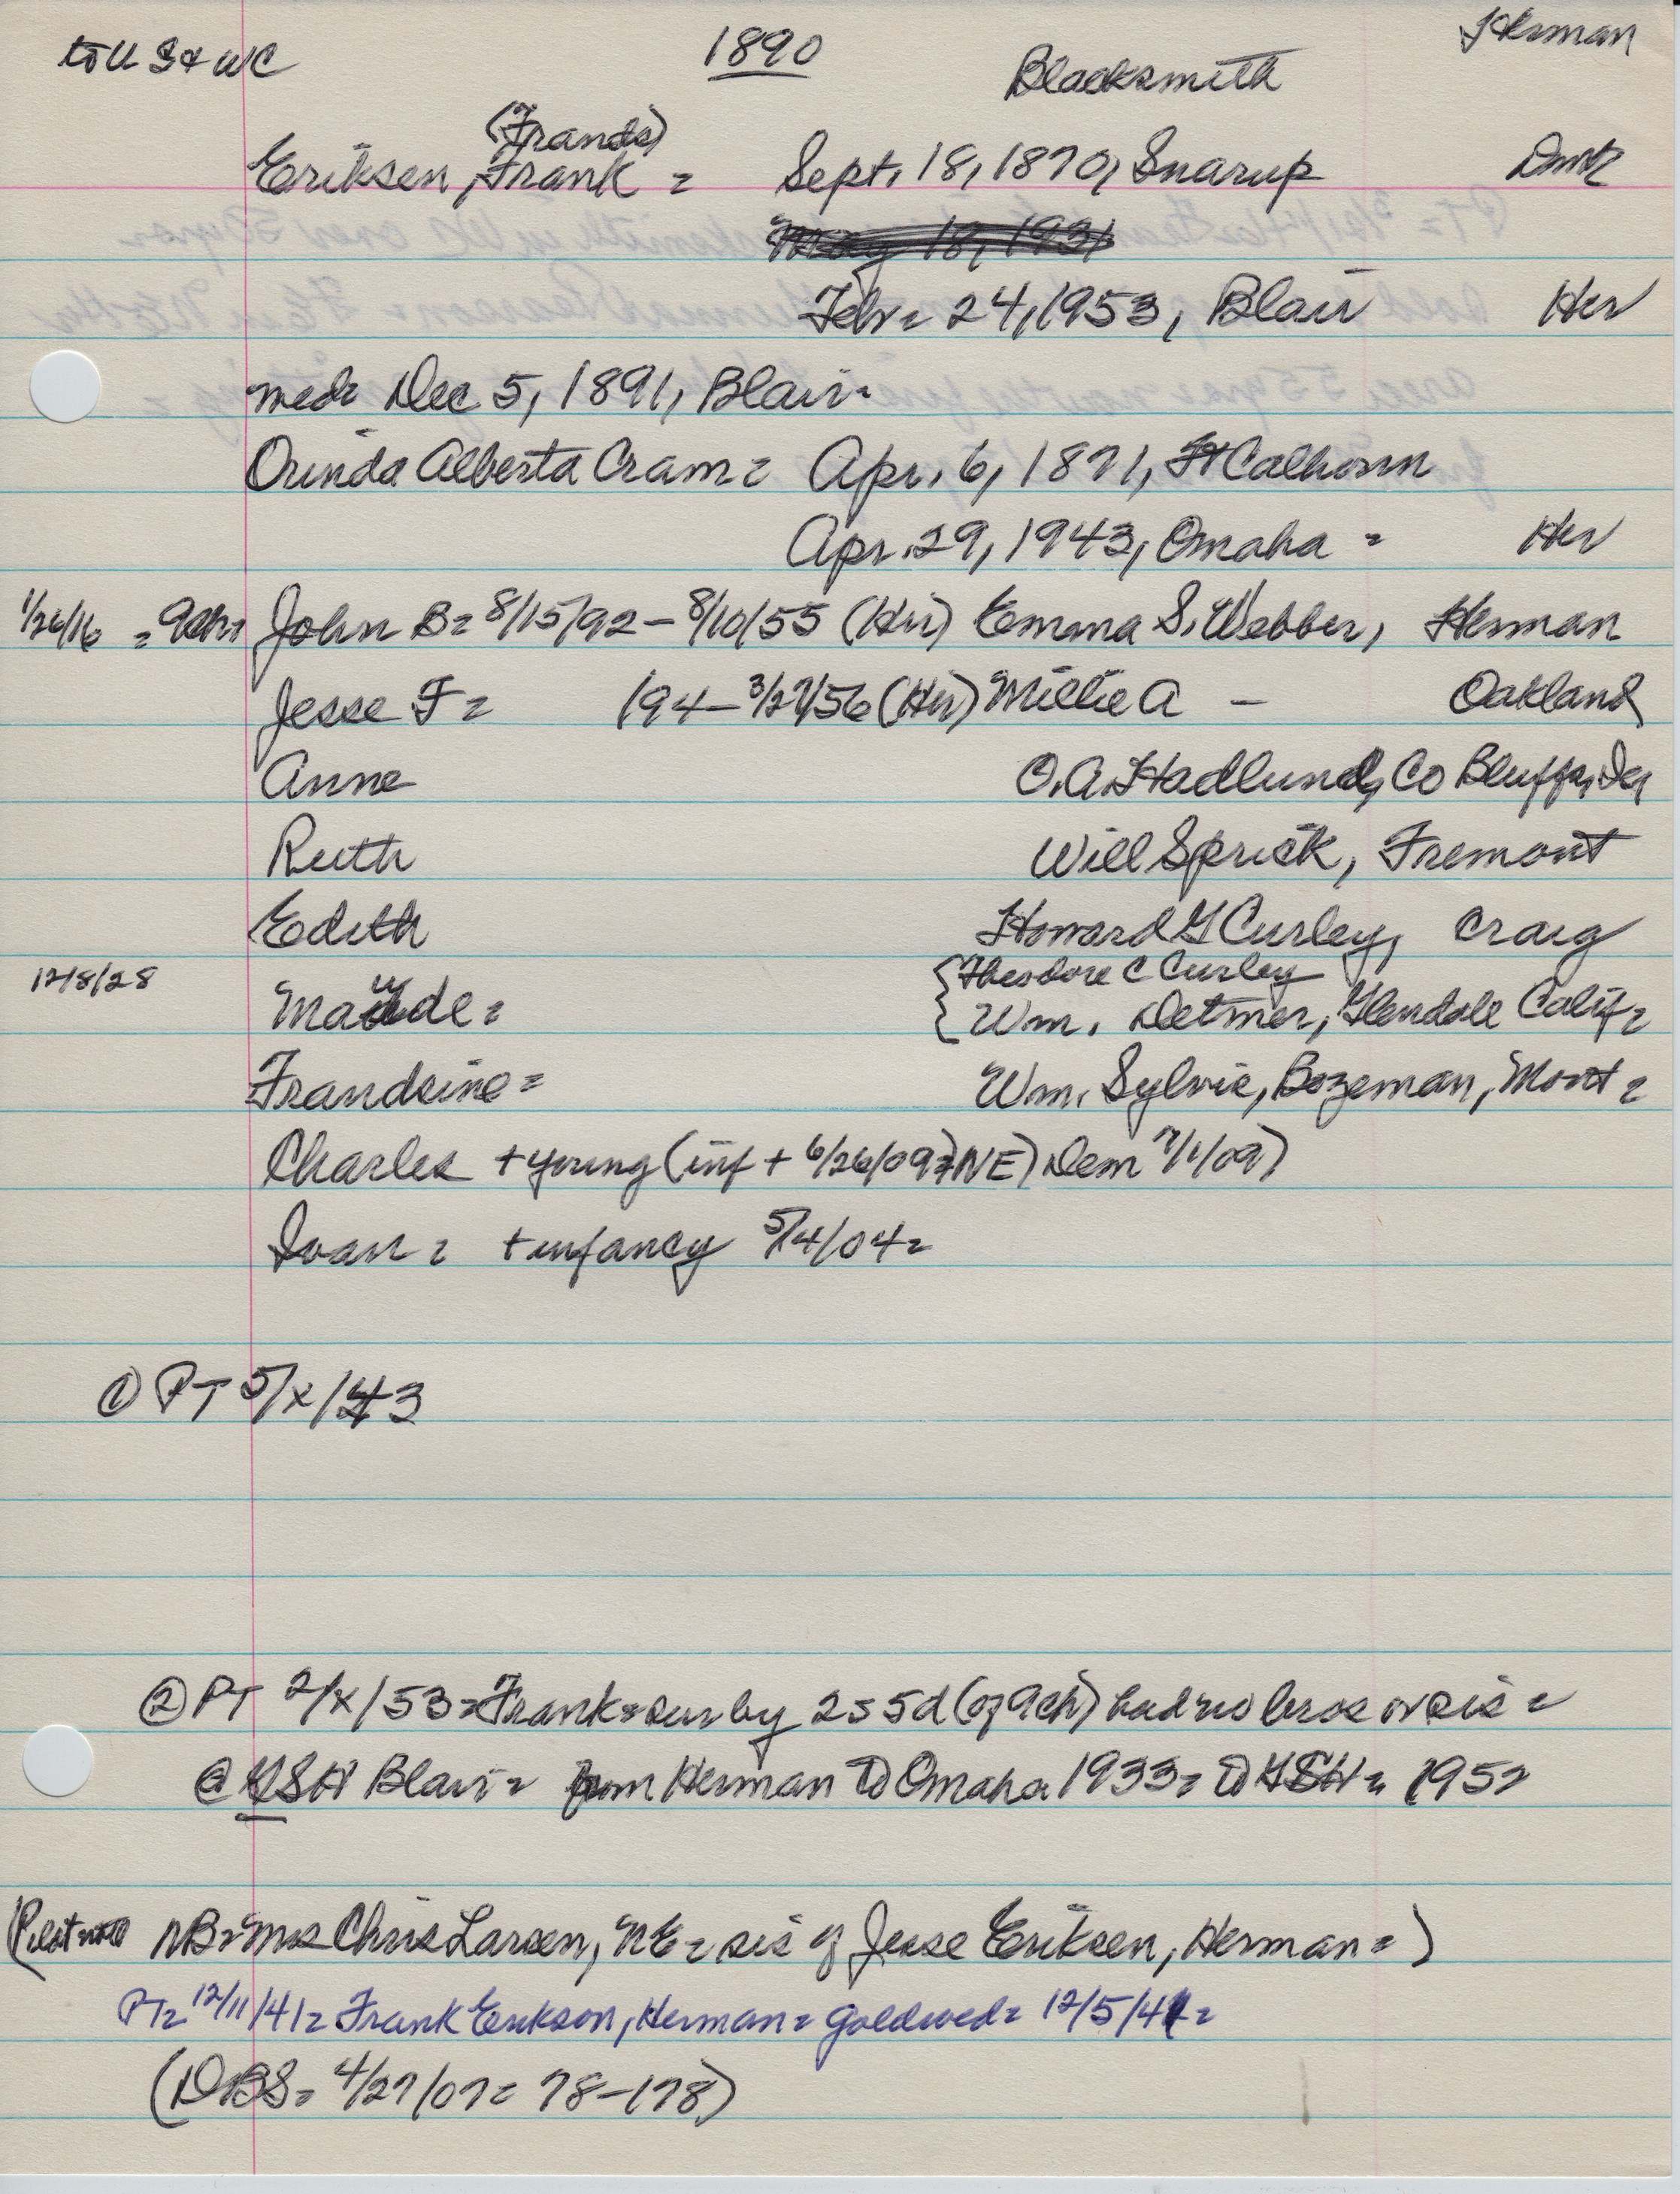 to U S & WC 1890 Herman
Blacksmith
(Frands)
Eriksen, Frank = Sept. 18, 1870, Snarup Dmk
May 18, 1931
Feb = 24, 1953, Blair Her
med= Dec 5, 1891, Blair=
Orinda Alberta Cram = Apr. 6, 1871, Ft Calhoun
Apr. 29, 1943, Omaha = Her
1/26/16 = 9ch= John B = 8/15/92 – 8/10/55 (Her) Emma S. Webber, Herman
Jesse F = 194 – 3/27/56 (Her) Millie A – Oakland
Anne O.A. Hadlund, Co Bluffs, Ia
Ruth Will Sprick, Fremont
Edith Howard G Curley, Craig
12/8/28 Theodore C Curley
Maude = Wm. Detmer, Glendale Calif =
Frandsine = Wm. Sylvie, Bozeman, Mont =
Charles + young (inf + 6/26/09 = NE) Dem 7/1/09)
Ivan = + infancy 5/4/04 =
① PT 5/x/43
② PT 2/x/53 = Frank = sur by 2s 5d (of 9ch) had no bros or sis =
@ GSH Blair = from Herman to Omaha 1933 = to GSH = 1952
( NB = Mrs Chris Larsen, NE = sis of Jesse Eriksen, Herman = )
PT = 12/11/41 = Frank Erikson, Herman = goldwed = 12/5/41 =
(DBS = 4/27/07 = 78–178)